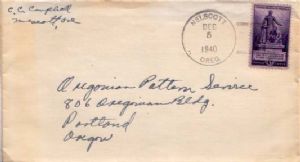 C. C. Campbell
Nelscott, Ore
NELSCOTT
DEC
5
1940
OREG.
Oregonian Pattern Service
806 Oregonian Bldg.
Portland
Oregon